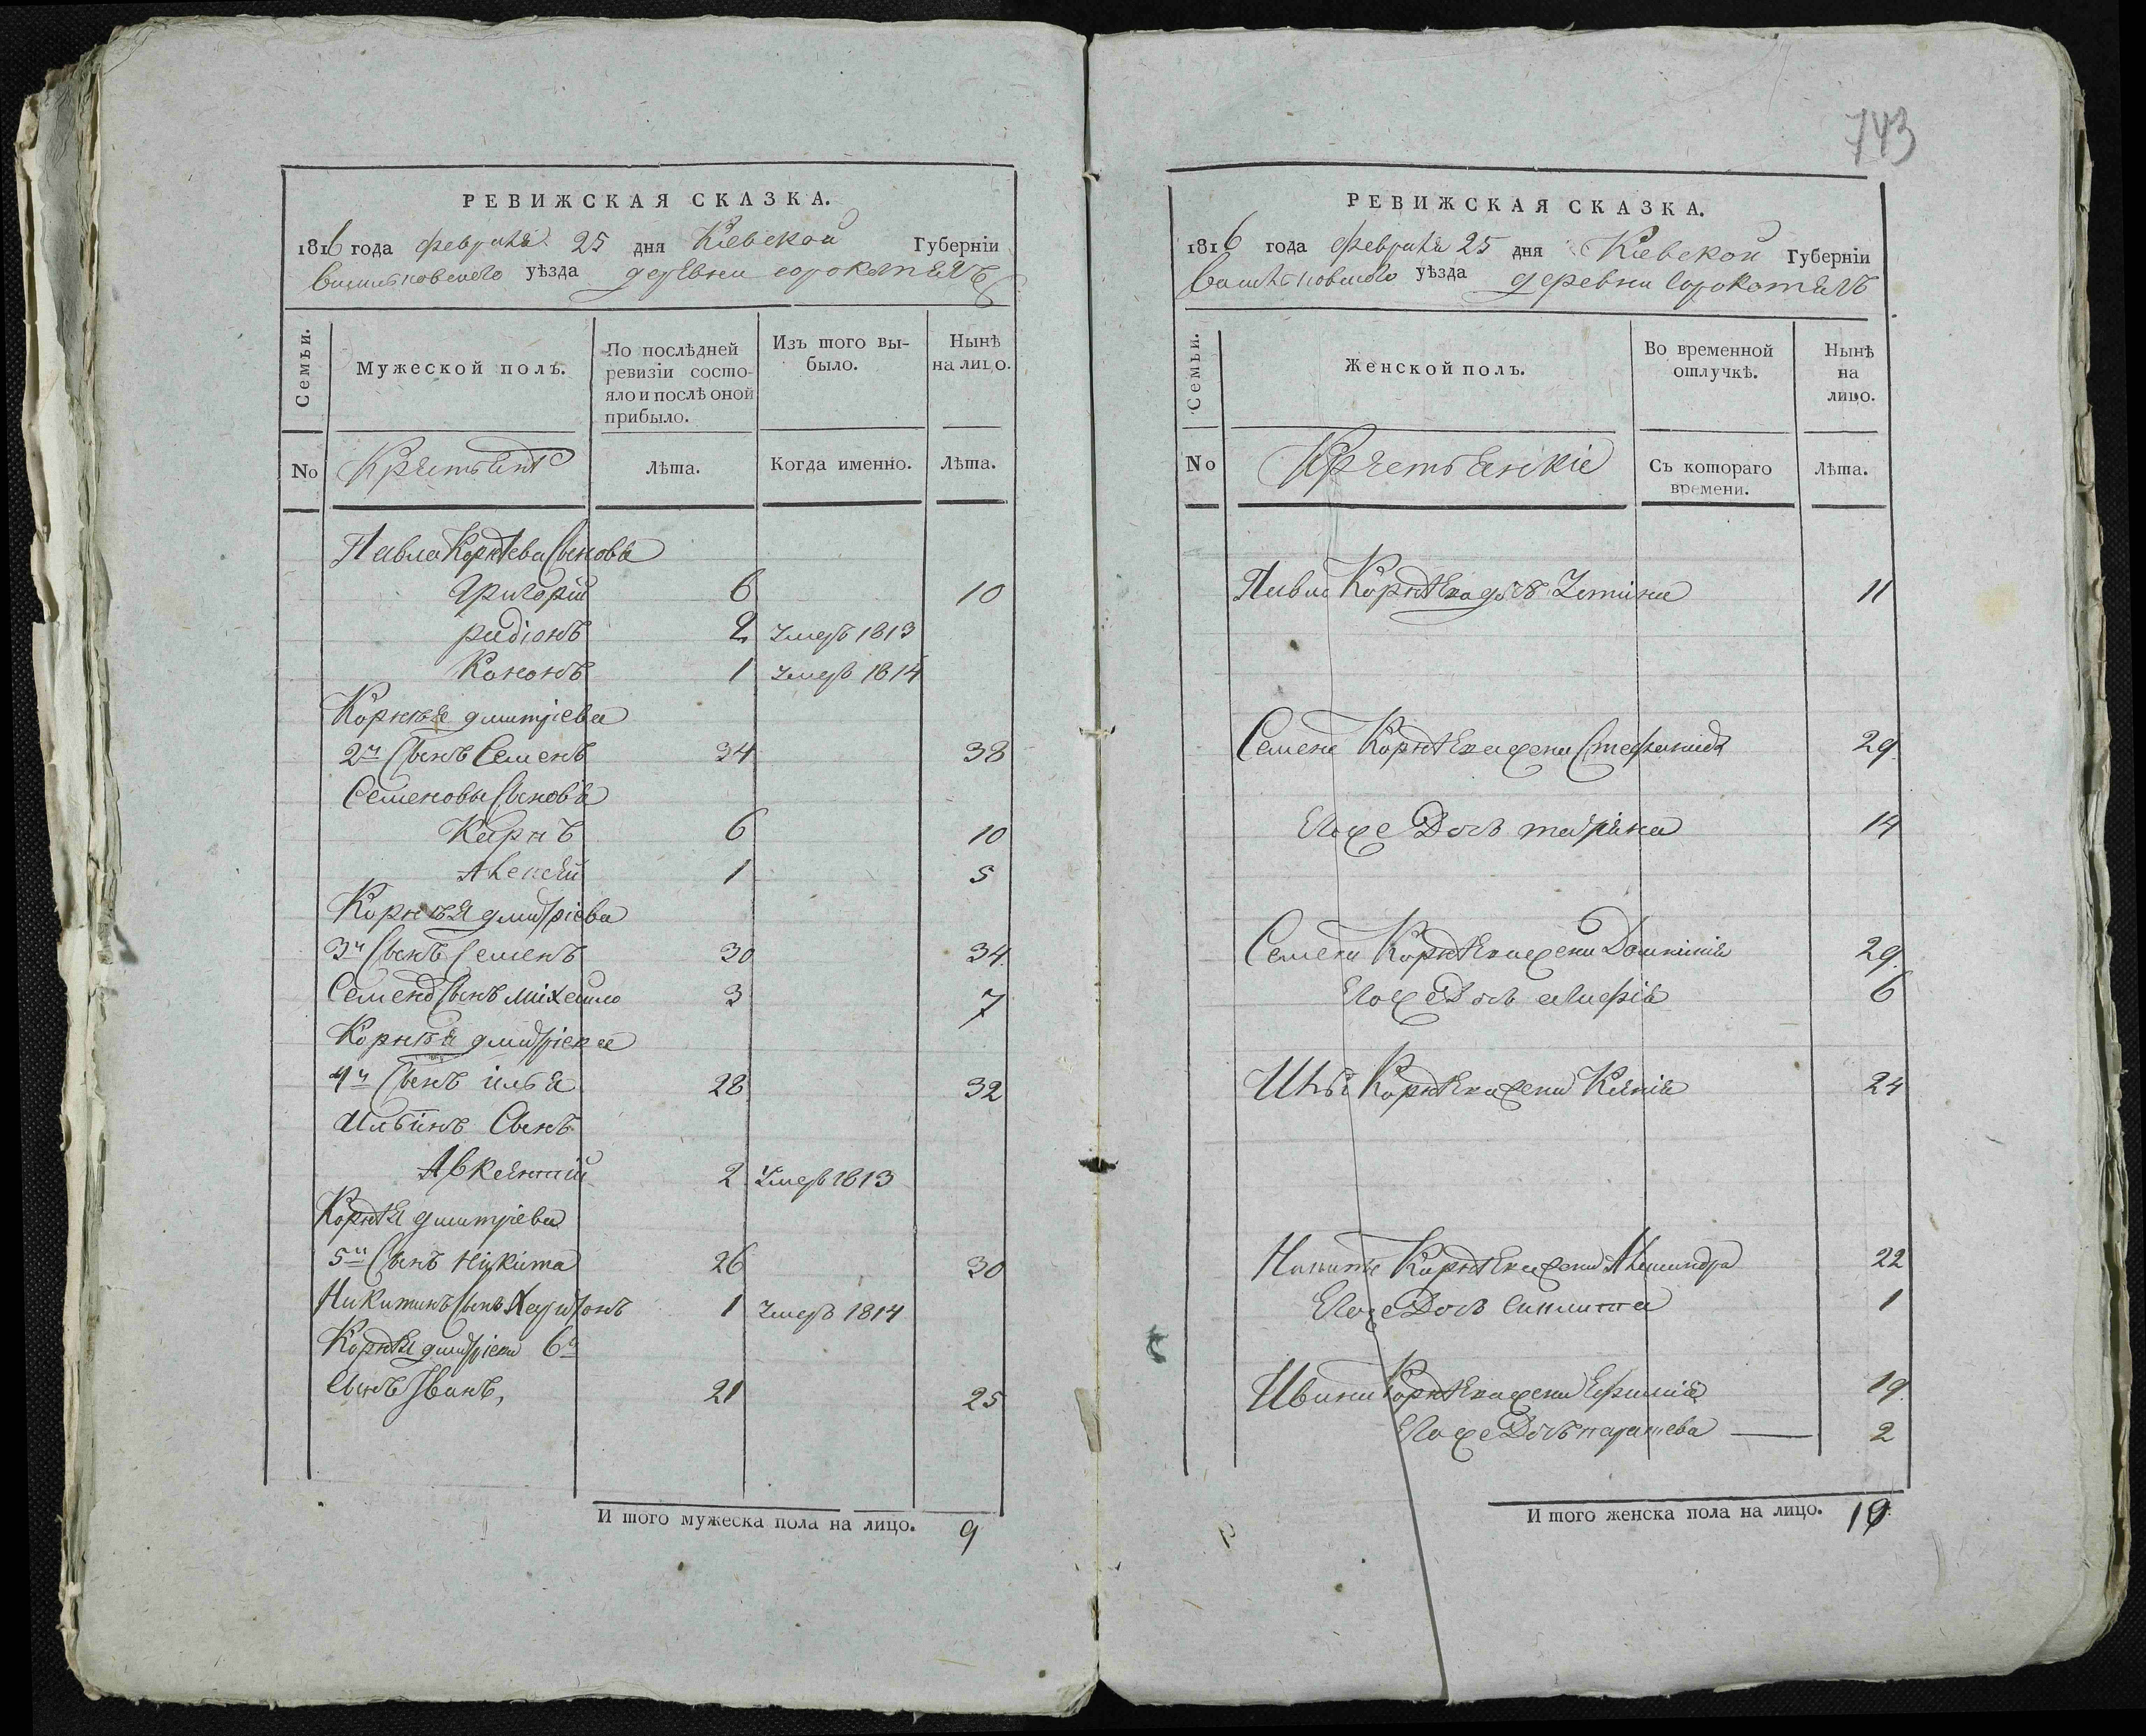 РЕВИЖСКАЯ СКАЗКА.
1816 года февраля 25 дня Кіевской Губерніи
Васильковского уѣзда деревни сорокотягъ
Семьи.
Мужеской полъ.
По послѣдней ревизіи состояло и послѣ оной прибыло.
Изъ того выбыло.
Нынѣ на лицо.
No
Крестьяне
Лѣта.
Когда именно.
Лѣта.
Павла Корнѣева Сыновя
Григорій 6 10
радіонъ 2 Умеръ 1813
Кононъ 1 умеръ 1814
Корнѣя дмитріева
2й Сынъ Семенъ 34 38
Семеновы Сыновя
Карпъ 6 10
Алексѣй 1 5
Корнѣя дмитріева
3й Сынъ Семенъ 30 34
Семена Сынъ міхайло 3 7
Корнѣя дмитріева
4й Сынъ ілья 28 32
Ильинъ Сынъ
Авксентій 2 Умеръ 1813
Корнѣя дмитріева
5й Сынъ Нікита 26 30
Никитинъ Сынъ Харитонъ 1 Умеръ 1814
Корнѣя дмитріева 6й
Сынъ Іванъ, 21 25
И того мужеска пола на лицо. 9
743
РЕВИЖСКАЯ СКАЗКА.
1816 года февраля 25 дня Кіевской Губерніи
Васильковского уѣзда деревни Сорокотягъ
Семьи.
Женской полъ.
Во временной отлучкѣ.
Нынѣ на лицо.
No
Крестьянскіе
Съ котораго времени.
Лѣта.
Павла Корнѣева дочь Устина 11
Семена Корнѣева жена Стефанида 29
Егоже Дочь марина 14
Семена Корнѣева жена Домникія 29
Егоже Дочь 6
Ильи Корнѣева жена Ксенія 24
Никиты Корнѣева жена Александра 22
Егоже Дочь 1
Ивана Корнѣева жена Ефимія 19
Егоже Дочь парасцева 2
И того женска пола на лицо. 10